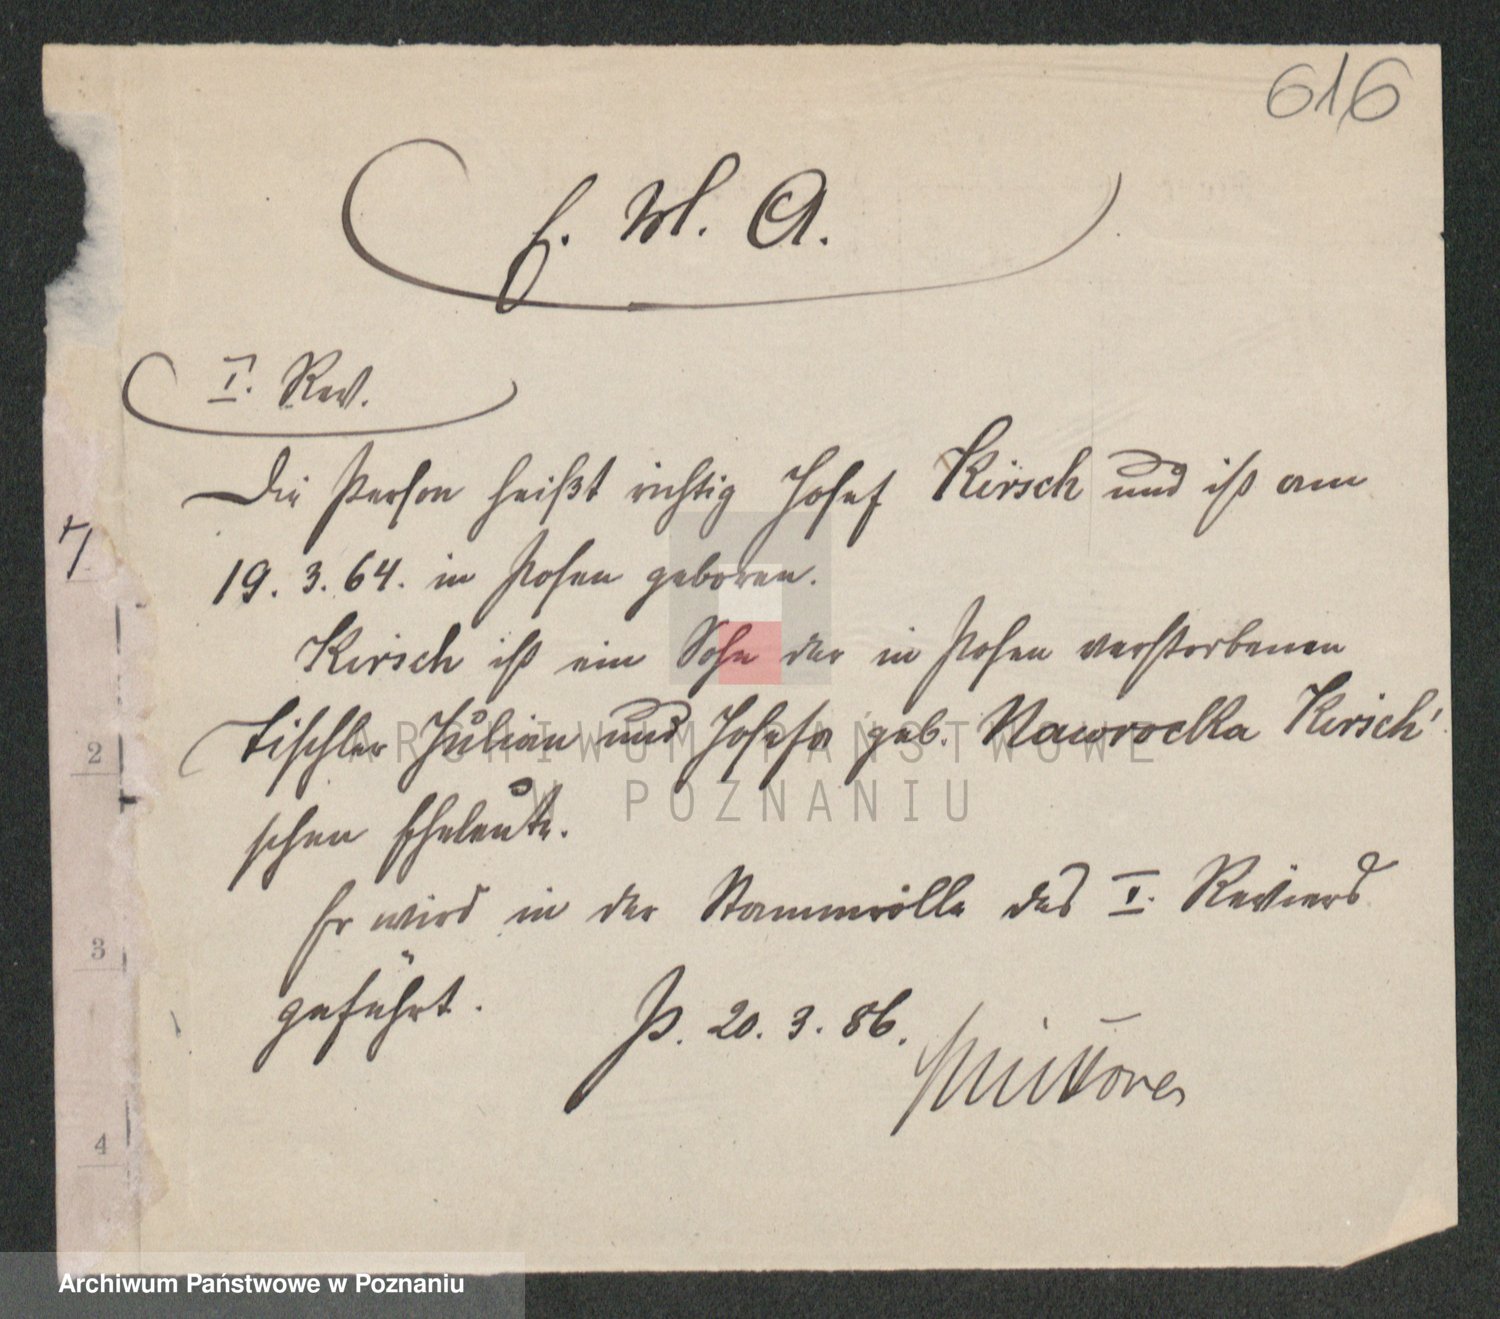 616
E. M. A.
I. Rev.
Die Person heißt richtig Josef Kirsch und ist am
19. 3. 64. in Posen geboren.
Kirsch ist ein Sohn der in Posen verstorbenen
Tischler Julian und Josefa geb. Nawrocka Kirsch'
schen Eheleute.
Er wird in der Stammrolle des I. Reviers
geführt.
P. 20. 3. 86.
2
3
4
ARCHIWUM PAŃSTWOWE
W POZNANIU
Archiwum Państwowe w Poznaniu